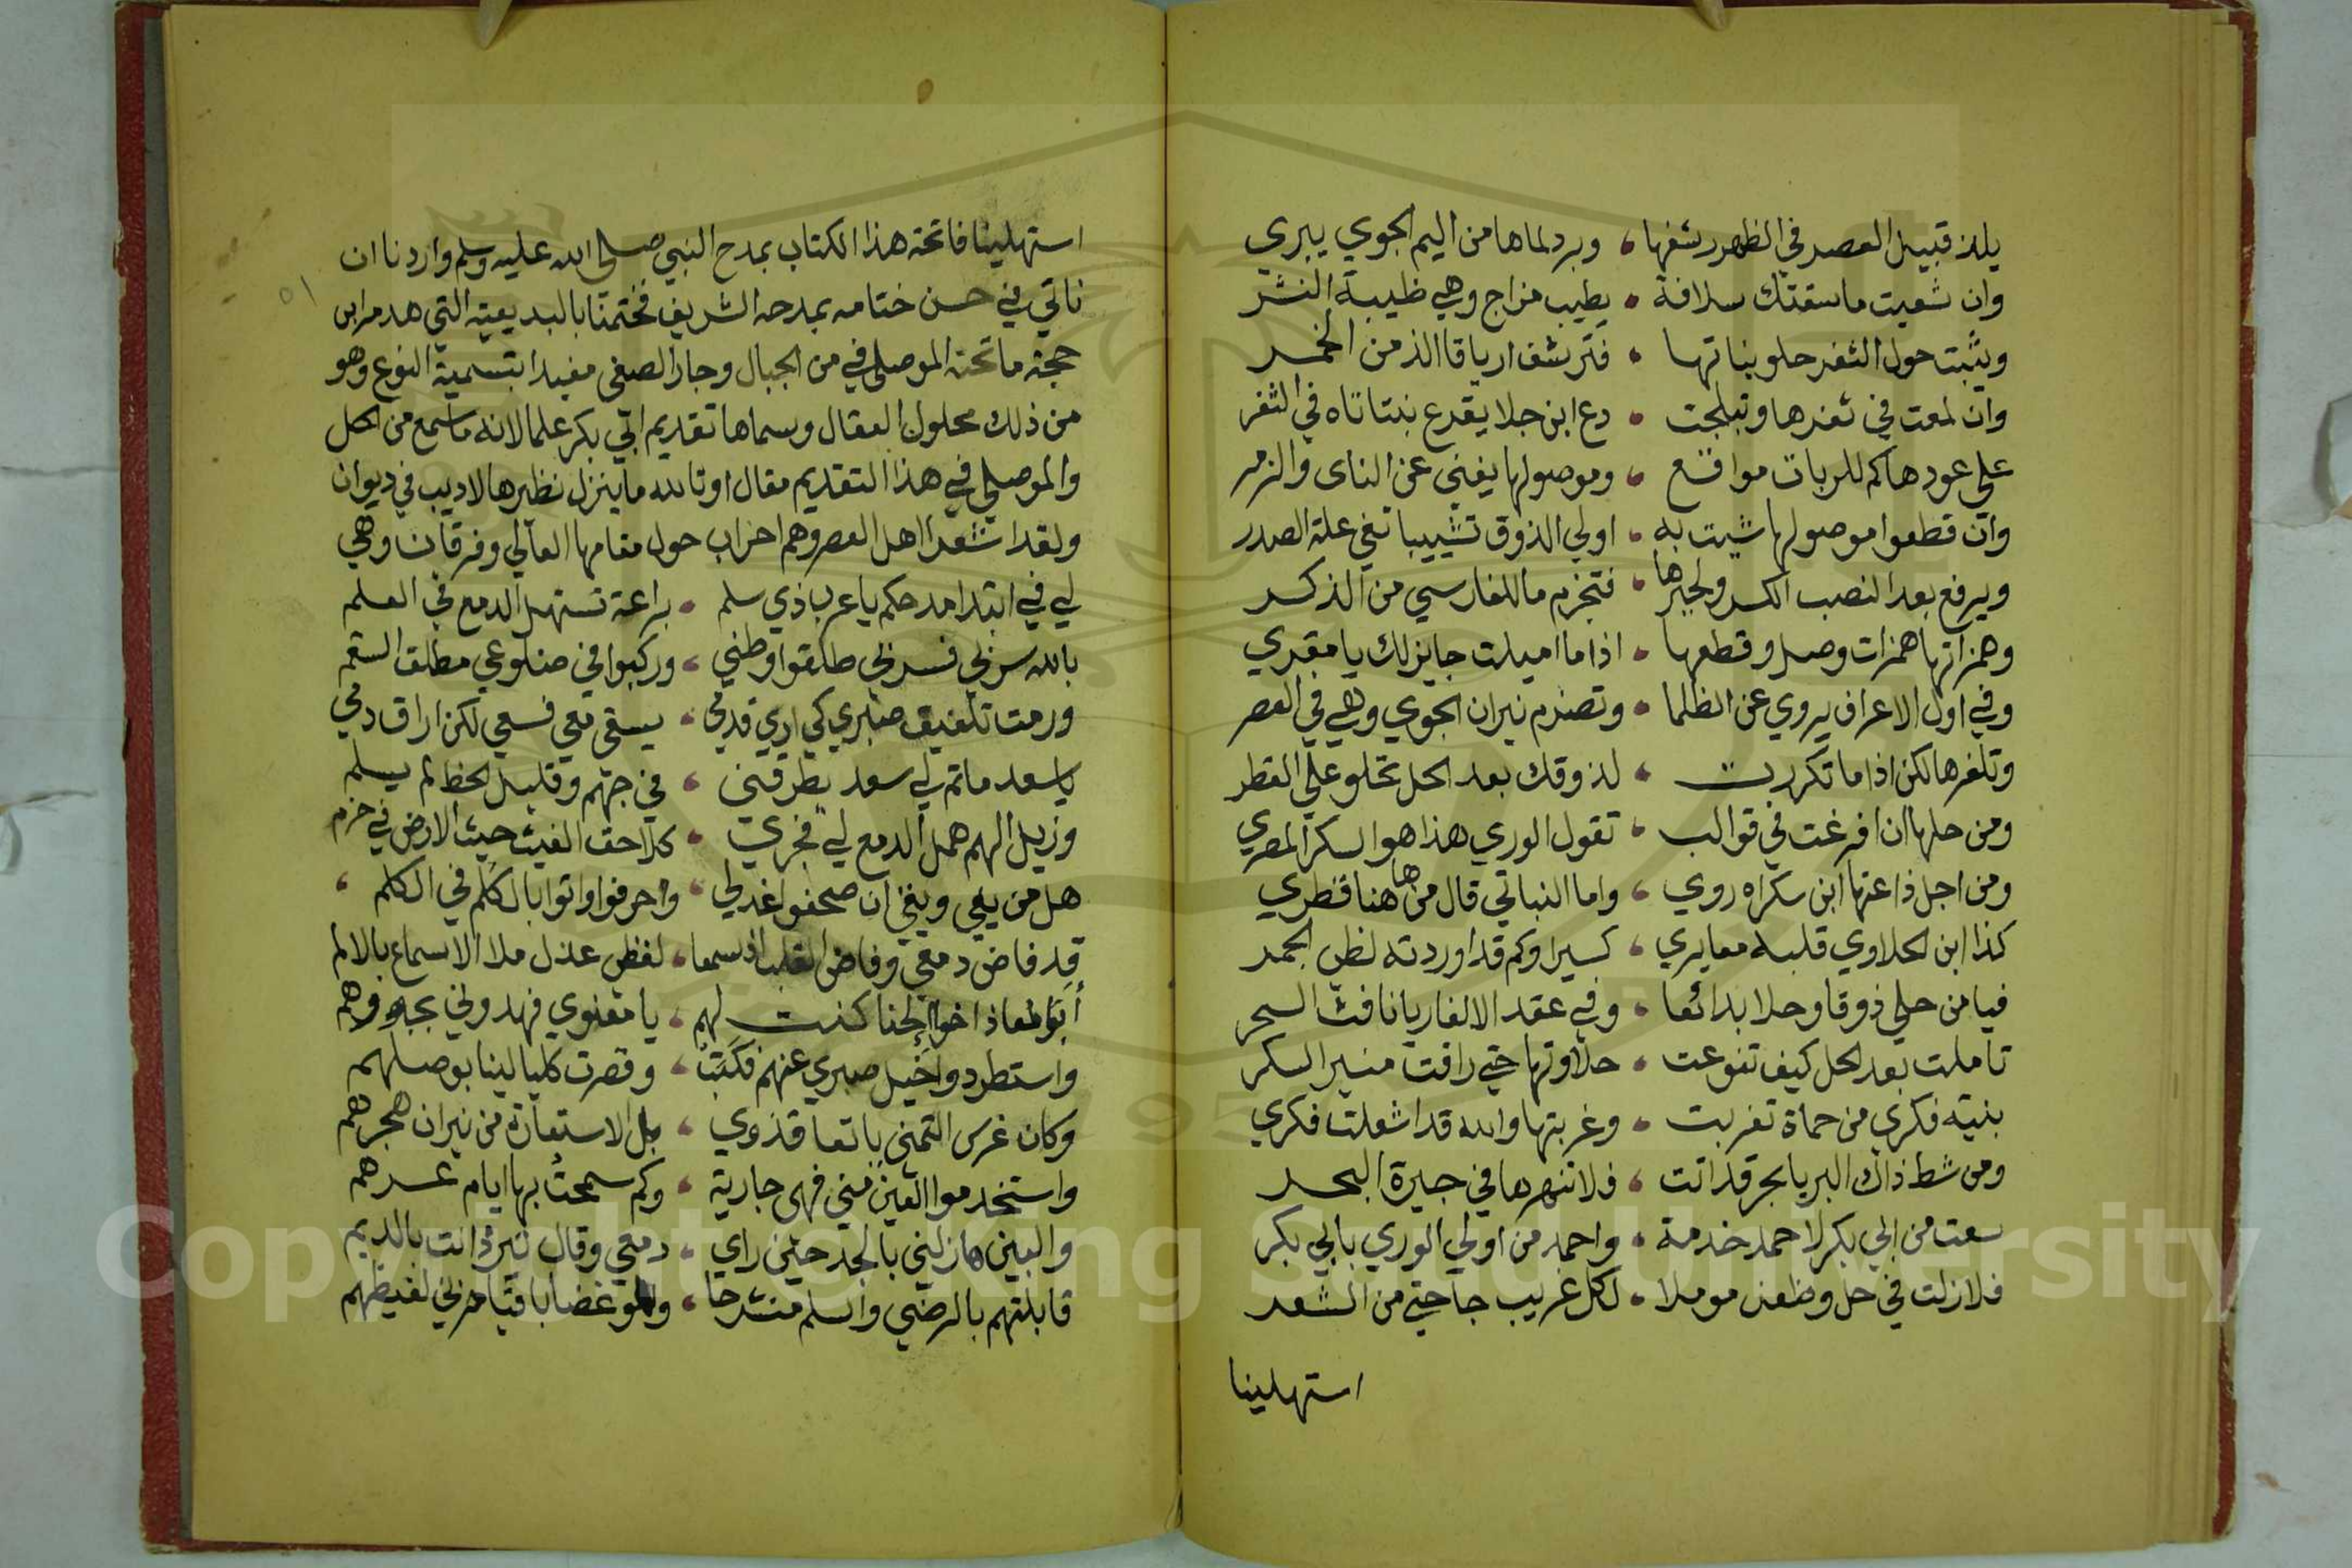 يلذ قبيل العصر في الظهر رشفها ، وبرد لماها من اليم الجوي يبري
وان شعيت ماسقتك سلافة ، يطيب مزاج وهي طيبة النشر
ويثبت حول الثغر حلو بناتها ، فترشف ارياقا الذ من الخمر
وان لمعت في ثغرها وتبلجت ، دع ابن جلا يقدع بنتاتاه في الثغر
على عودها كم للربات مواقع ، وموصولها يغني عن الناى والزمر
وان قطعوا موصولها شيت به ، اولي الذوق تشبيبا تغي علة الصدر
ويرفع بعد النصب الكسر ولجيرها ، فتخرم ما للفارسي من الذكر
وهمزاتها همزات وصل وقطعها ، اذا ما اميلت جايز لك يا مقري
وفي اول الاعراف يروي عن الظلما ، وتضرم نيران الجوي وهي في العصر
وتلغزها لكن اذا ما تكررت ، لذوقك بعد الحل تحلو علي القطر
ومن حلها ان افرغت في قوالب ، تقول الوري هذا هو السكر المصري
ومن اجل ذا عنها ابن سكراه روي ، واما النباتي قال من ها هنا قطري
كذا ابن الحلاوي قلبه معايري ، كسيرا وكم قد اوردته لظي الجمر
فيا من حلي ذوقا وحلا بدائعا ، وفي عقد الالغاز يا نافث السحر
تاملت بعد الحل كيف تنوعت ، حلاوتها حتي رافت منير السكر
بنية فكري من حماة تغربت ، وغربتها والله قد اشعلت فكري
ومن شط ذاك البر يا بحر قد اتت ، فلا تنهرها في جيرة البحر
سعت من ابي بكر لاحمد خدمة ، واحمد من اولي الوري بابي بكر
فلا زلت في حل وظعن موملا ، لكل غريب جا حتي من الشعر
استهلينا
استهلينا فاتحة هذا الكتاب بمدح النبي صلى الله عليه وسلم واردنا ان
ناتي في حسن ختامه بمدحه الشريف فختمنا بالبديعية التي هدم ابن
حجة ما نحته الموصلي في من الجبال وجارا الصفي مفيدا بتسمية النوع وهو
من ذلك محلول العقال وسماها تقديم ابي بكر علما لانه ما سمع من الحل
والموصلي في هذا التقديم مقال او تالله ما ينزل نظيرها لاديب في ديوان
ولقد اشعرا اهل العصر وهم احزاب حول مقامها العالي وفرقان وهي
لي في ابتدا مدحكم يا عرب ذي سلم ، براعة تستهل الدمع في العلم
بالله سر بي فسر بي طلقوا وطني ، وركبوا في ضلوعي مطلق السقم
ورمت تلفيق صبري كي اري قدمي ، يسعى معي فسعي لكن اراق دمي
يا سعد ما تم لي سعد يطرقني ، في جهم وقليل الحظ لم يسلم
وزيل الهم همل الدمع لي فجري ، كلاحق الغيث حيث الارض في خرم
هل من يفي ويغي ان صحفوا عذلي ، وحرفوا واتوا بالكلم في الكلم ،
قد فاض دمعي وفاض القلب اذ سمعا ، لفظ عذل ملا الاسماع بالالم
ابو معاذ اخو الخنسا كنت لهم ، يا معنوي فهدوني بجورهم
واستطردوا خيل صبري عنهم فكبت ، وقصرت كليالينا بوصلهم
وكان غرس التمني يانعا فذوي ، بل الاستعارة من نيران هجرهم
واستخدموا العين مني فهى جارية ، وكم سمحت بها ايام عسرهم
والبين هازلني بالجد حين راي ، دمعي وقال تبرد انت بالديم
قابلتهم بالرضي والسلم منشرحا ، ولوا غضابا فيا حزني لغيظهم